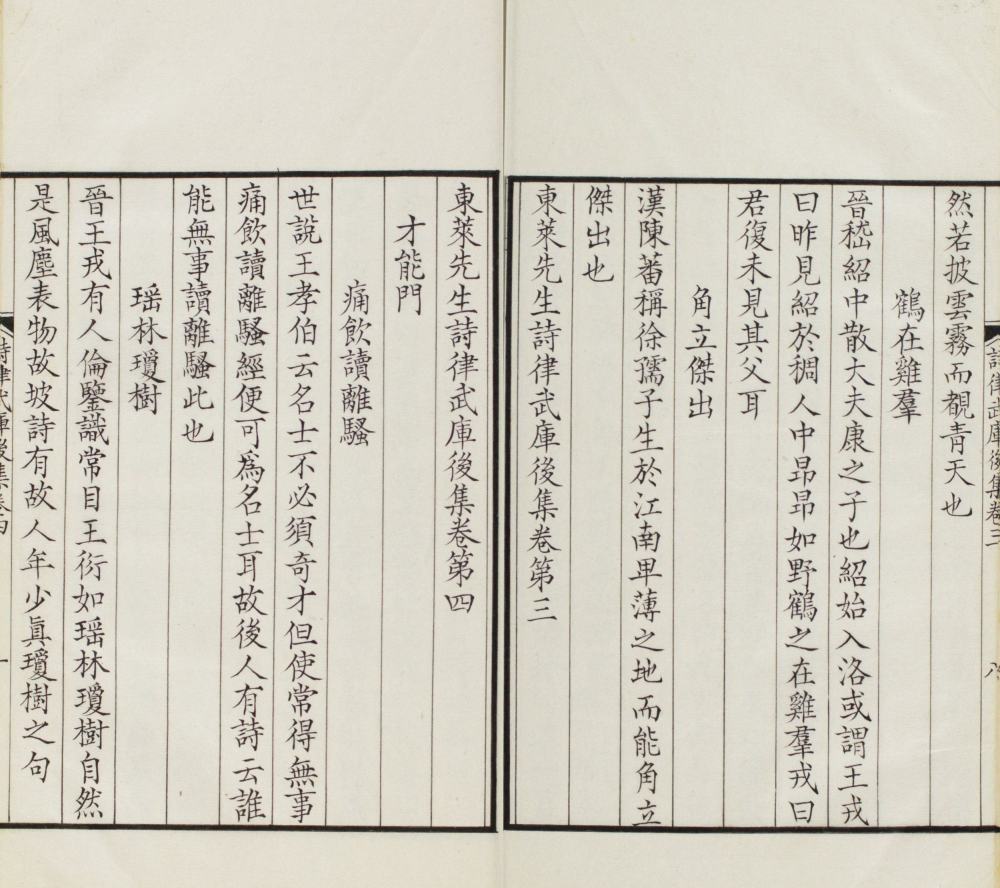 然若披雲霧而覩青天也
鶴在雞羣
晉嵇紹中散大夫康之子也紹始入洛或謂王戎
曰昨見紹於稠人中昂昂如野鶴之在雞羣戎曰
君復未見其父耳
角立傑出
漢陳蕃稱徐孺子生於江南卑薄之地而能角立
傑出也
東萊先生詩律武庫後集卷第三
東萊先生詩律武庫後集卷第四
才能門
痛飲讀離騷
世說王孝伯云名士不必須奇才但使常得無事
痛飲讀離騷經便可爲名士耳故後人有詩云誰
能無事讀離騷此也
瑶林瓊樹
晉王戎有人倫鑒識常目王衍如瑶林瓊樹自然
是風塵表物故坡詩有故人年少眞瓊樹之句
詩律武庫後集卷三
八
詩律武庫後集卷四
一